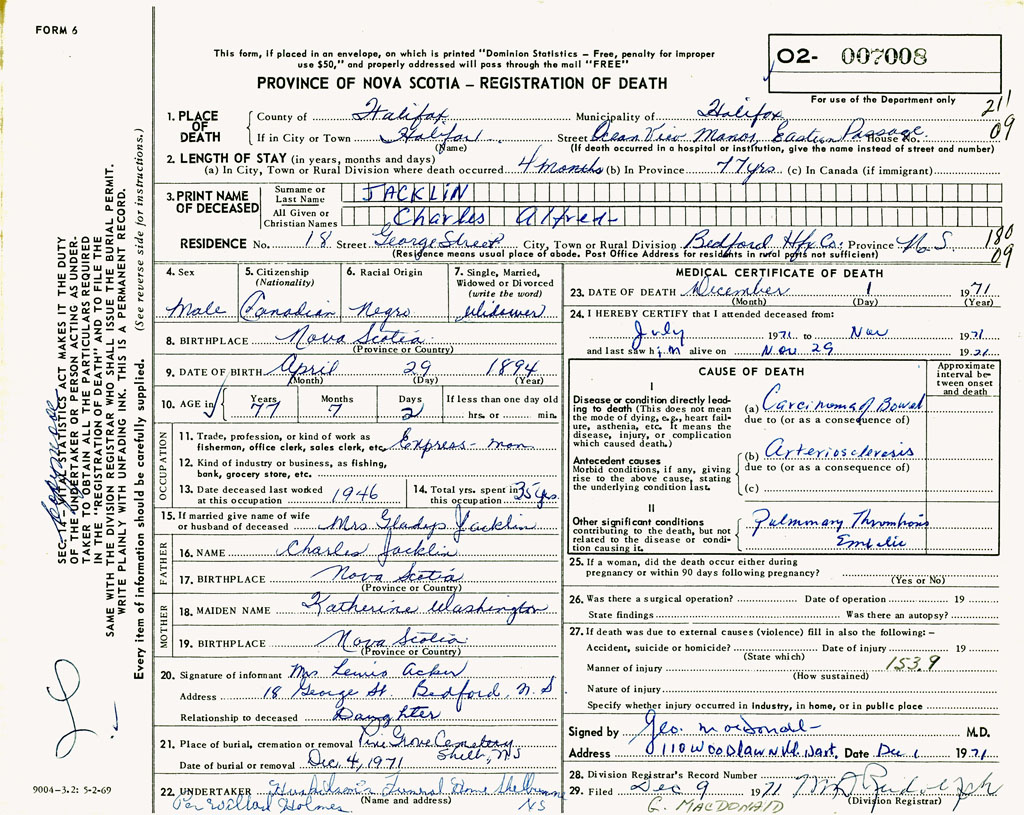 FORM 6
This form, if placed in an envelope, on which is printed "Dominion Statistics – Free, penalty for improper
use $50," and properly addressed will pass through the mail "FREE"
PROVINCE OF NOVA SCOTIA – REGISTRATION OF DEATH
O2- 007008
For use of the Department only
211
09
1. PLACE OF DEATH
County of Halifax Municipality of Halifax
If in City or Town Halifax Street Ocean View Manor, Eastern Passage House No.
(Name)
(If death occurred in a hospital or institution, give the name instead of street and number)
2. LENGTH OF STAY (in years, months and days)
(a) In City, Town or Rural Division where death occurred 4 months (b) In Province 77 yrs. (c) In Canada (if immigrant)
3. PRINT NAME OF DECEASED
Surname or Last Name JACKLIN
All Given or Christian Names Charles Alfred
RESIDENCE No. 18 Street George Street City, Town or Rural Division Bedford Hfx Co. Province N.S.
180
09
(Residence means usual place of abode. Post Office Address for residents in rural parts not sufficient)
4. Sex Male
5. Citizenship (Nationality) Canadian
6. Racial Origin Negro
7. Single, Married, Widowed or Divorced (write the word) Widower
8. BIRTHPLACE Nova Scotia
(Province or Country)
9. DATE OF BIRTH April 29 1894
(Month) (Day) (Year)
10. AGE in Years 77 Months 7 Days 2 If less than one day old hrs. or min.
OCCUPATION
11. Trade, profession, or kind of work as
fisherman, office clerk, sales clerk, etc. Express-man
12. Kind of industry or business, as fishing,
bank, grocery store, etc.
13. Date deceased last worked at this occupation 1946
14. Total yrs. spent in this occupation 35 yrs.
15. If married give name of wife
or husband of deceased Mrs Gladys Jacklin
FATHER
16. NAME Charles Jacklin
17. BIRTHPLACE Nova Scotia
(Province or Country)
MOTHER
18. MAIDEN NAME Katherine Washington
19. BIRTHPLACE Nova Scotia
(Province or Country)
20. Signature of informant Mrs Lewis Acker
Address 18 George St Bedford, N.S
Relationship to deceased Daughter
21. Place of burial, cremation or removal Pine Grove Cemetery Shelb, NS
Date of burial or removal Dec. 4, 1971
22. UNDERTAKER Funeral Home Shelburne NS
(Name and address)
Per Willard Holmes
MEDICAL CERTIFICATE OF DEATH
23. DATE OF DEATH December 1 1971
(Month) (Day) (Year)
24. I HEREBY CERTIFY that I attended deceased from:
July 1971 to Nov 1971
and last saw him alive on Nov 29 1971
CAUSE OF DEATH
Approximate interval between onset and death
I
Disease or condition directly leading to death (This does not mean
the mode of dying, e.g., heart failure, asthenia, etc. It means the
disease, injury, or complication
which caused death.)
(a) Carcinoma of Bowel
due to (or as a consequence of)
Antecedent causes
Morbid conditions, if any, giving
rise to the above cause, stating
the underlying condition last.
(b) Arteriosclerosis
due to (or as a consequence of)
(c)
II
Other significant conditions
contributing to the death, but not
related to the disease or condition causing it.
Pulmonary Thrombosis
25. If a woman, did the death occur either during
pregnancy or within 90 days following pregnancy?
(Yes or No)
26. Was there a surgical operation? Date of operation 19
State findings Was there an autopsy?
27. If death was due to external causes (violence) fill in also the following: –
Accident, suicide or homicide? Date of injury 19
(State which)
Manner of injury 153.9
(How sustained)
Nature of injury
Specify whether injury occurred in industry, in home, or in public place
Signed by Geo. MacDonald M.D.
Address 110 WOODLAWN Rd. Dart. Date Dec 1 1971
28. Division Registrar's Record Number
29. Filed Dec 9 1971
(Division Registrar)
G. MACDONALD
SEC. 14 – VITAL STATISTICS ACT MAKES IT THE DUTY
OF THE UNDERTAKER OR PERSON ACTING AS UNDERTAKER TO OBTAIN ALL THE PARTICULARS REQUIRED
IN THE "REGISTRATION OF DEATH" AND TO FILE THE
SAME WITH THE DIVISION REGISTRAR WHO SHALL ISSUE THE BURIAL PERMIT.
WRITE PLAINLY WITH UNFADING INK. THIS IS A PERMANENT RECORD.
Every item of information should be carefully supplied. (See reverse side for instructions.)
9004-3.2: 5-2-69